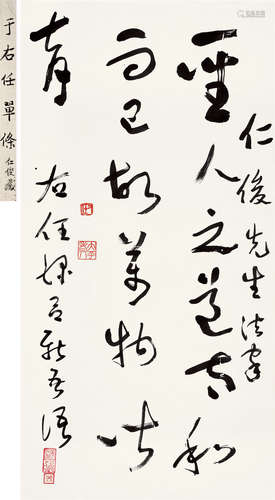 于右任單條
仁俊藏
仁俊先生法家
聖人之道太和
而已故萬物皆
育
右任録呂新吾語